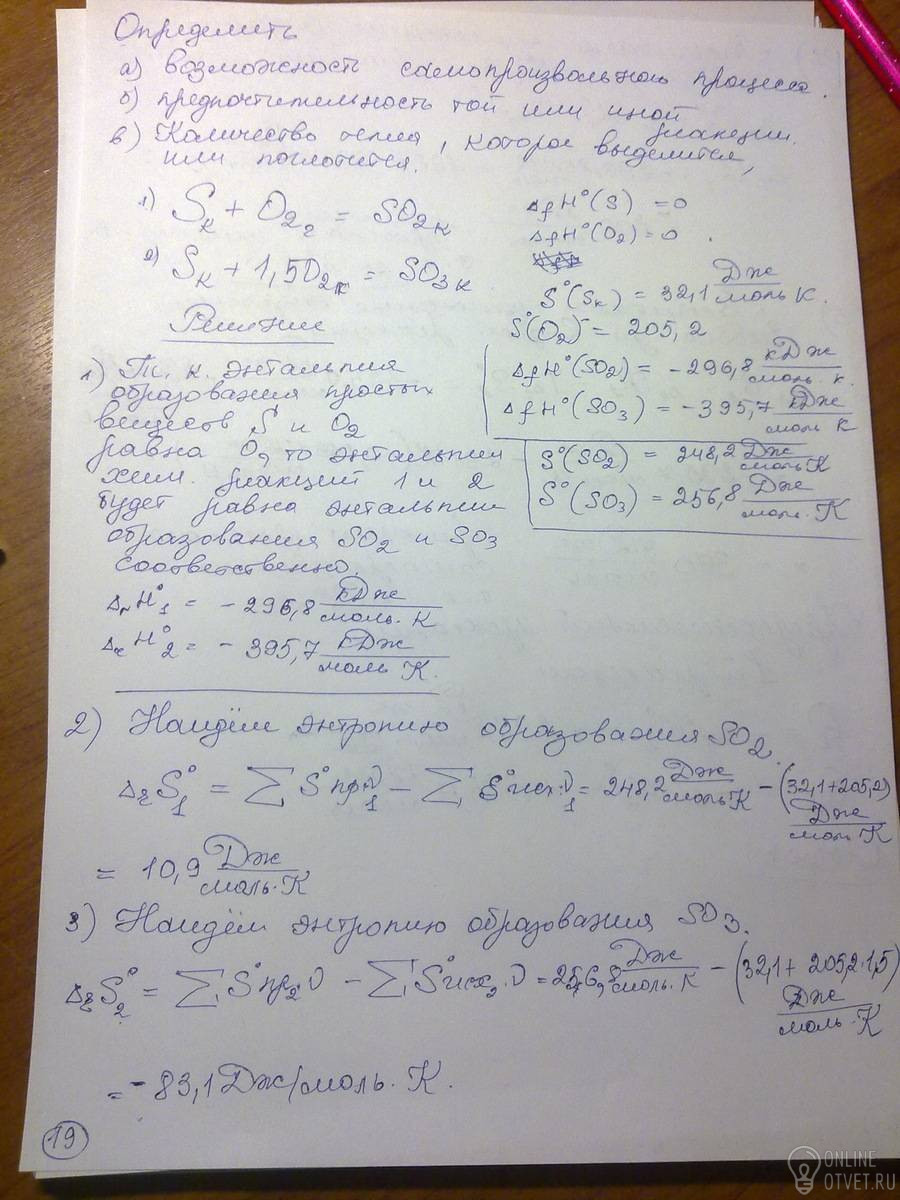 Определить
а) возможность самопроизвольного процесса.
б) предпочтительность той или иной реакции.
в) Количество тепла, которое выделится,
или поглотится.
1) Sк + O2г = SO2к
2) Sк + 1,5O2г = SO3к
ΔfH°(S) = 0
ΔfH°(O2) = 0
S°(Sк) = 32,1 Дж/моль К.
S°(O2) = 205,2
ΔfH°(SO2) = -296,8 кДж/моль. к.
ΔfH°(SO3) = -395,7 кДж/моль К
S°(SO2) = 248,2 Дж/моль К
S°(SO3) = 256,8 Дж/моль. К
Решение
1) Т. к. энтальпия
образования простых
веществ S и O2
равна О, то энтальпии
хим. реакций 1 и 2
будет равна энтальпии
образования SO2 и SO3
соответственно.
ΔrH°1 = -296,8 кДж/моль. К
ΔrH°2 = -395,7 кДж/моль К.
2) Найдём энтропию образования SO2.
ΔrS°1 = ∑ S°пр.υ1 - ∑ S°исх.υ1 = 248,2 Дж/моль К - (32,1+205,2) Дж/моль К
= 10,9 Дж/моль. К
3) Найдём энтропию образования SO3.
ΔrS°2 = ∑ S°пр2 υ - ∑ S°исх2 υ = 256,8 Дж/моль. К - (32,1 + 205,2·1,5) Дж/моль. К
= -83,1 Дж/моль. К.
19
ONLINE
OTVET.RU